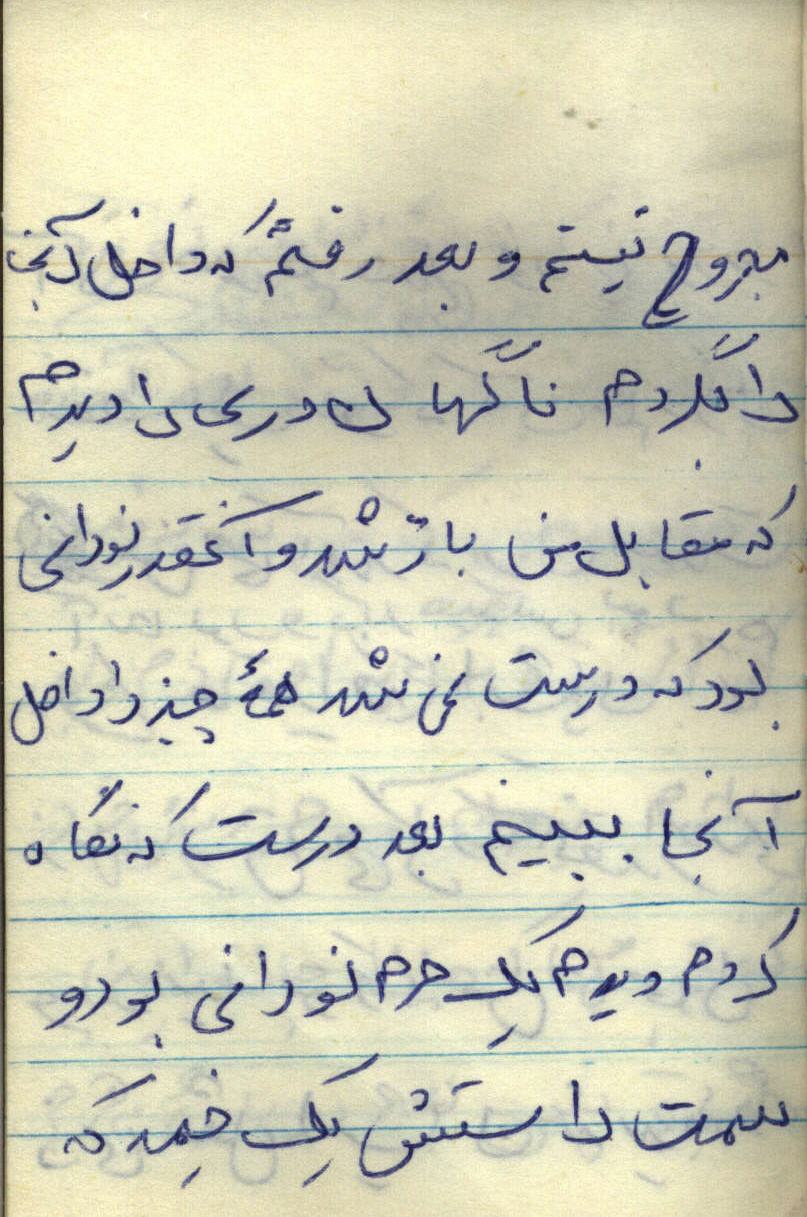 مجروح نیستم و بعد رفتم که داخل آنجا
را بگردم ناگهان دری را دیدم
که مقابل من باز شد و آنقدر نورانی
بود که درست نمی شد همهٔ چیز را داخل
آنجا ببینم بعد درست که نگاه
کردم دیدم یک حرم نورانی بود و
سمت راستش یک خیمه که